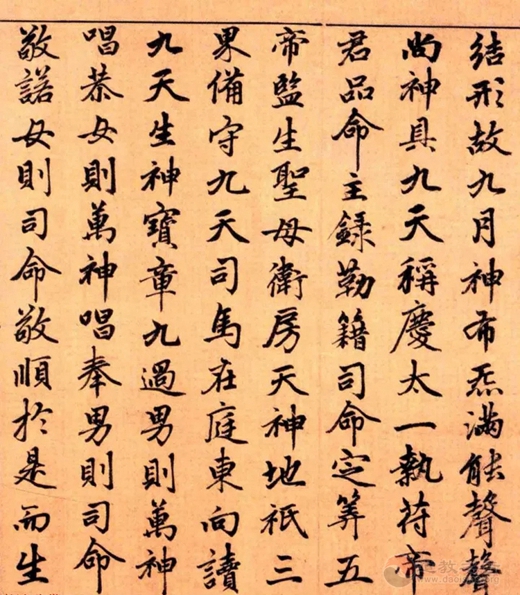 結形故九月神布炁滿能聲聲
尚神具九天稱慶太一執符帝
君品命主錄勒籍司命定筭五
帝監生聖母衛房天神地祇三
果備守九天司馬在庭東向讀
九天生神寶章九過男則萬神
唱恭女則萬神唱奉男則司命
敬諾女則司命敬順於是而生